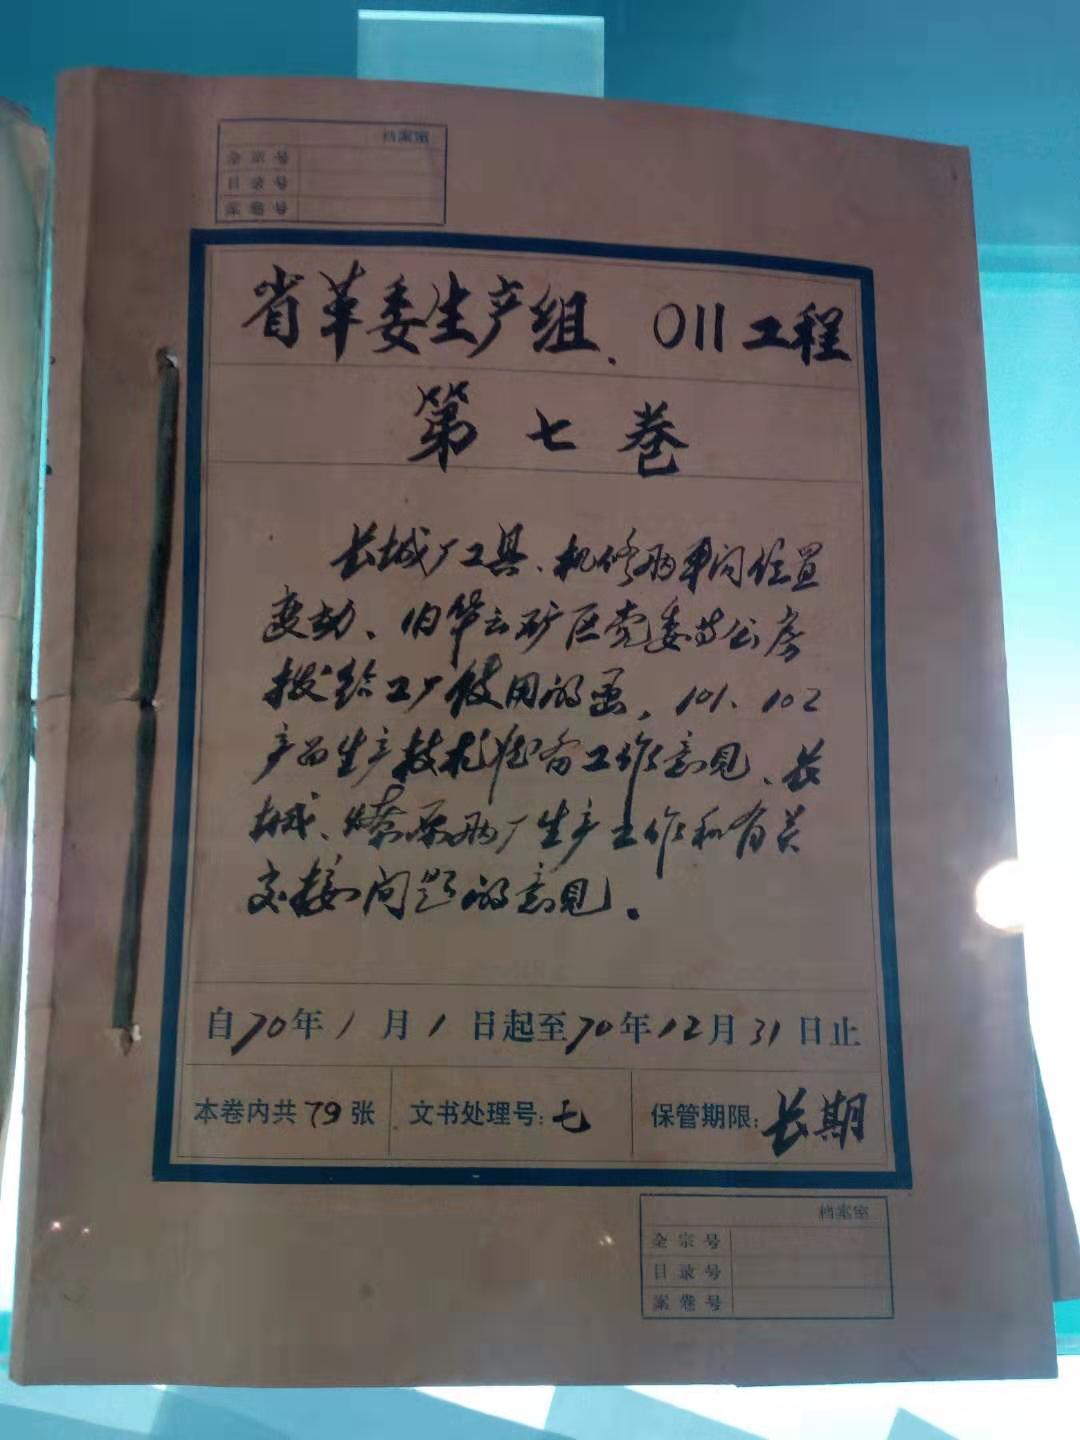 档案室
全宗号
目录号
案卷号
省革委生产组、011工程
第七卷
长城厂工具、机修两车间位置
变动、旧华云矿区党委等公房
拨给工厂使用的函，101、102
产品生产技术准备工作意见、长
城、燎原两厂生产工作和有关
交接问题的意见。
自70年1月1日起至70年12月31日止
本卷内共79张 文书处理号：七 保管期限：长期
档案室
全宗号
目录号
案卷号